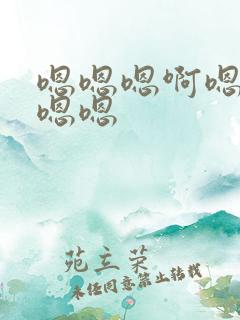 嗯嗯嗯啊嗯
嗯嗯
苑立荣
未经同意禁止转载